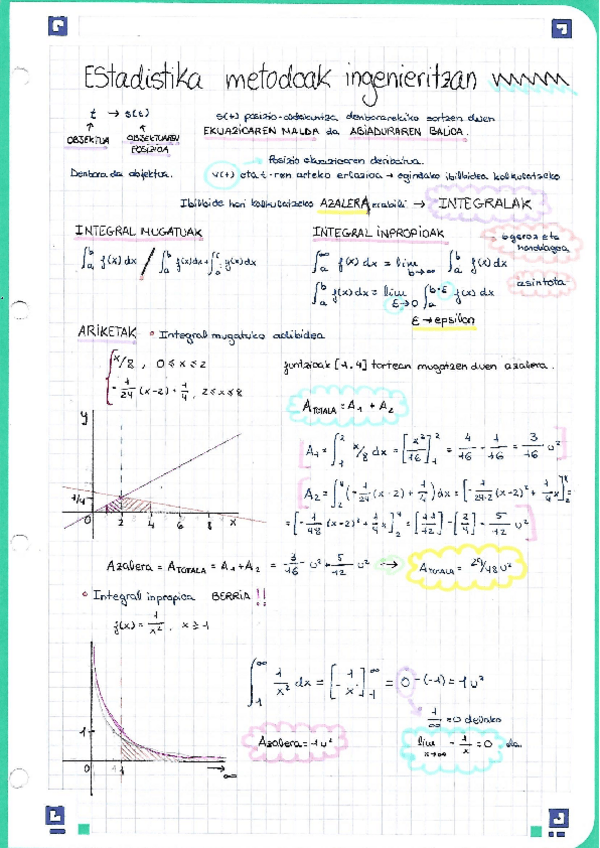 Estadistika metodoak ingenieritzan
t → s(t)
OBJEKTUA OBJEKTUAREN POSIZIOA
s(t) posizio-aldakuntza denborarekiko sortzen duen
EKUAZIOAREN MALDA da ABIADURAREN BALIOA.
Posizio ekuazioaren deribatua.
Denbora da objektua.
v(t) eta t-ren arteko erlazioa → egindako ibilbidea kalkulatzeko
Ibilbide hori kalkulatzeko AZALERA erabili → INTEGRALAK
INTEGRAL MUGATUAK
∫_a^b f(x)dx / ∫_a^b f(x)dx + ∫ g(x)dx
INTEGRAL INPROPIOAK
→ ogeroz eta handiagoa
∫_a^∞ f(x)dx = lim_{b→∞} ∫_a^b f(x)dx
∫_a^b f(x)dx = lim_{ε→0} ∫_a^{b-ε} f(x)dx
asintota
ε → epsilon
ARIKETAK
• Integral mugatuko adibidea
x/8 , 0 ≤ x ≤ 2
-1/24 (x-2) + 1/4 , 2 ≤ x ≤ 8
funtzioak [1,4] tartean mugatzen duen azalera.
A_TOTALA = A₁ + A₂
A₁ = ∫_1^2 x/8 dx = [x²/16]_1^2 = 4/16 - 1/16 = 3/16 u²
A₂ = ∫_2^4 (-1/24 (x-2) + 1/4) dx = [-1/24·2 (x-2)² + 1/4 x]_2^4 =
= [-1/48 (x-2)² + 1/4 x]_2^4 = [11/12] - [2/4] = 5/12 u²
y
1/4
0 2 4 6 8 x
Azalera = A_TOTALA = A₁ + A₂ = 3/16 u² + 5/12 u² → A_TOTALA = 29/48 u²
• Integral inpropioa BERRIA !!
f(x) = 1/x² , x ≥ 1
∫_1^∞ 1/x² dx = [-1/x]_1^∞ = 0 - (-1) = 1 u²
1/∞ = 0 delako
Azalera = 1 u²
lim_{x→∞} - 1/x = 0 da
1
0 1 ∞